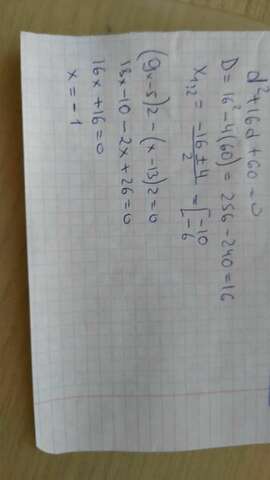 d²+16d+60=0
D=16²-4(60)=256-240=16
x₁,₂ = -16±4/2 = [-10 -6
(9x-5)2-(x-13)2=0
18x-10-2x+26=0
16x+16=0
x=-1